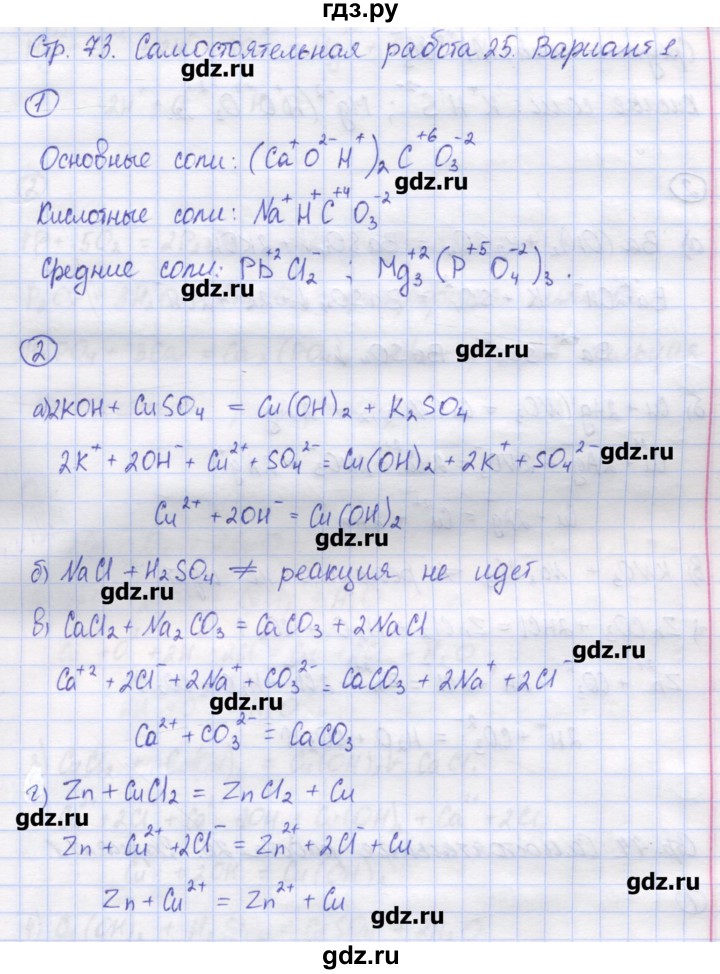 гдз.ру
Стр. 73. Самостоятельная работа 25. Вариант 1.
gdz.ru
1
Основные соли: (Ca⁺O²⁻H⁺)₂C⁺⁶O₃⁻²
gdz.ru
Кислотные соли: Na⁺H⁺C⁺⁴O₃⁻²
Средние соли: Pb⁺²Cl₂⁻ ; Mg₃⁺²(P⁺⁵O₄⁻²)₃.
gdz.ru
gdz.ru
2
а) 2KOH + CuSO₄ = Cu(OH)₂ + K₂SO₄
2K⁺ + 2OH⁻ + Cu²⁺ + SO₄²⁻ = Cu(OH)₂ + 2K⁺ + SO₄²⁻
gdz.ru
Cu²⁺ + 2OH⁻ = Cu(OH)₂
gdz.ru
б) NaCl + H₂SO₄ ≠ реакция не идет
gdz.ru
в) CaCl₂ + Na₂CO₃ = CaCO₃ + 2NaCl
gdz.ru
Ca⁺² + 2Cl⁻ + 2Na⁺ + CO₃²⁻ = CaCO₃ + 2Na⁺ + 2Cl⁻
gdz.ru
Ca²⁺ + CO₃²⁻ = CaCO₃
г) Zn + CuCl₂ = ZnCl₂ + Cu
gdz.ru
Zn + Cu²⁺ + 2Cl⁻ = Zn²⁺ + 2Cl⁻ + Cu
gdz.ru
Zn + Cu²⁺ = Zn²⁺ + Cu
gdz.ru
gdz.ru